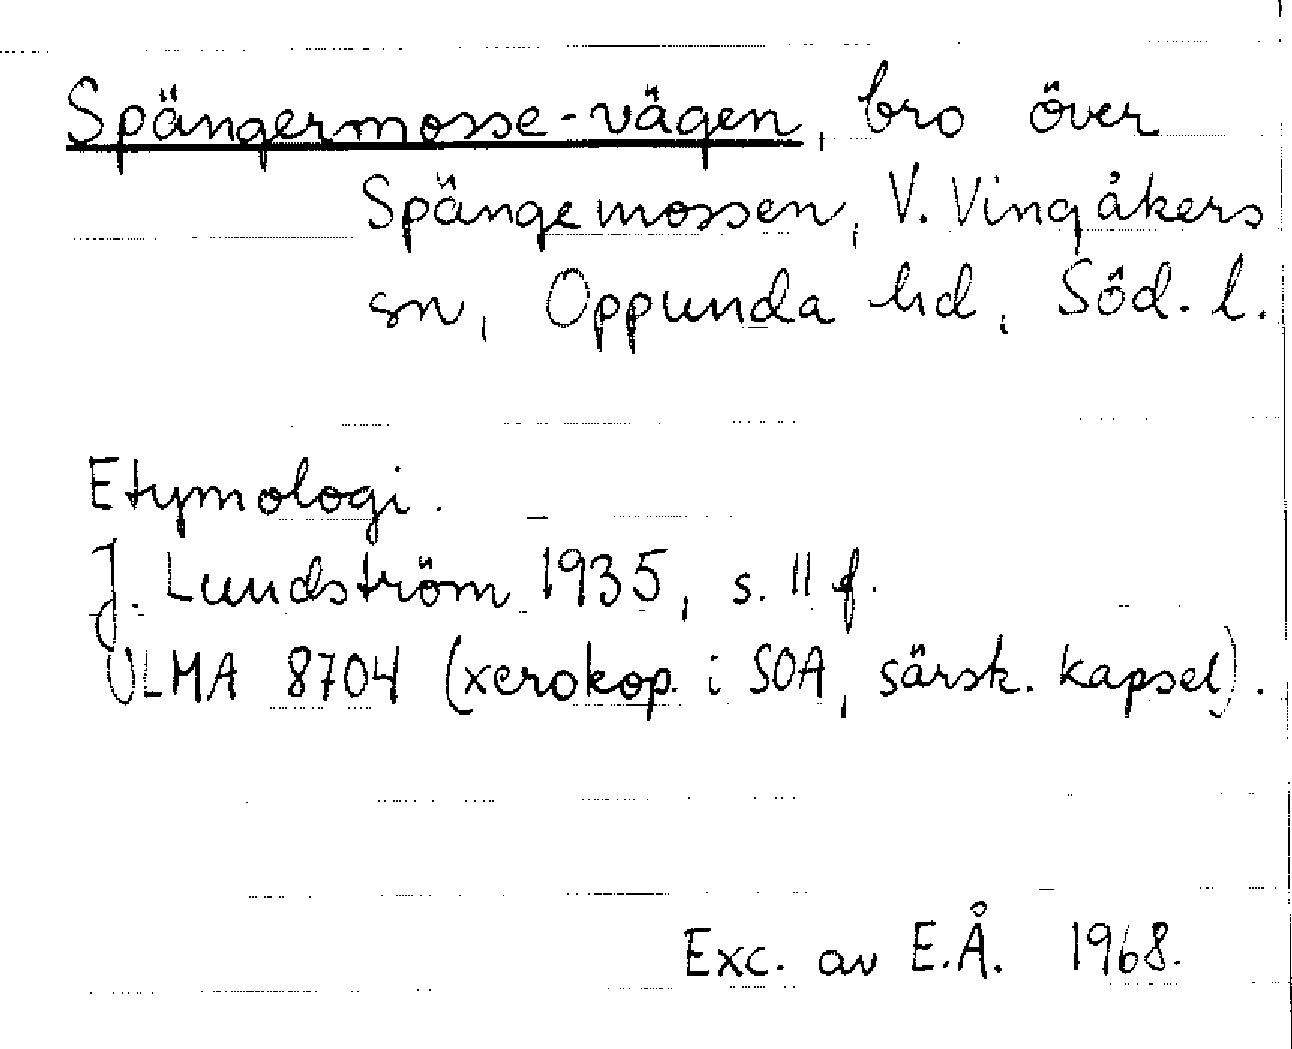 Spängermosse-vägen, bro över
Spängemossen, V. Vingåkers
sn, Oppunda hd, Söd. l.
Etymologi.
J. Lundström 1935, s. 11 f.
ULMA 8704 (xerokop. i SOA, särsk. kapsel).
Exc. av E.Å. 1968.